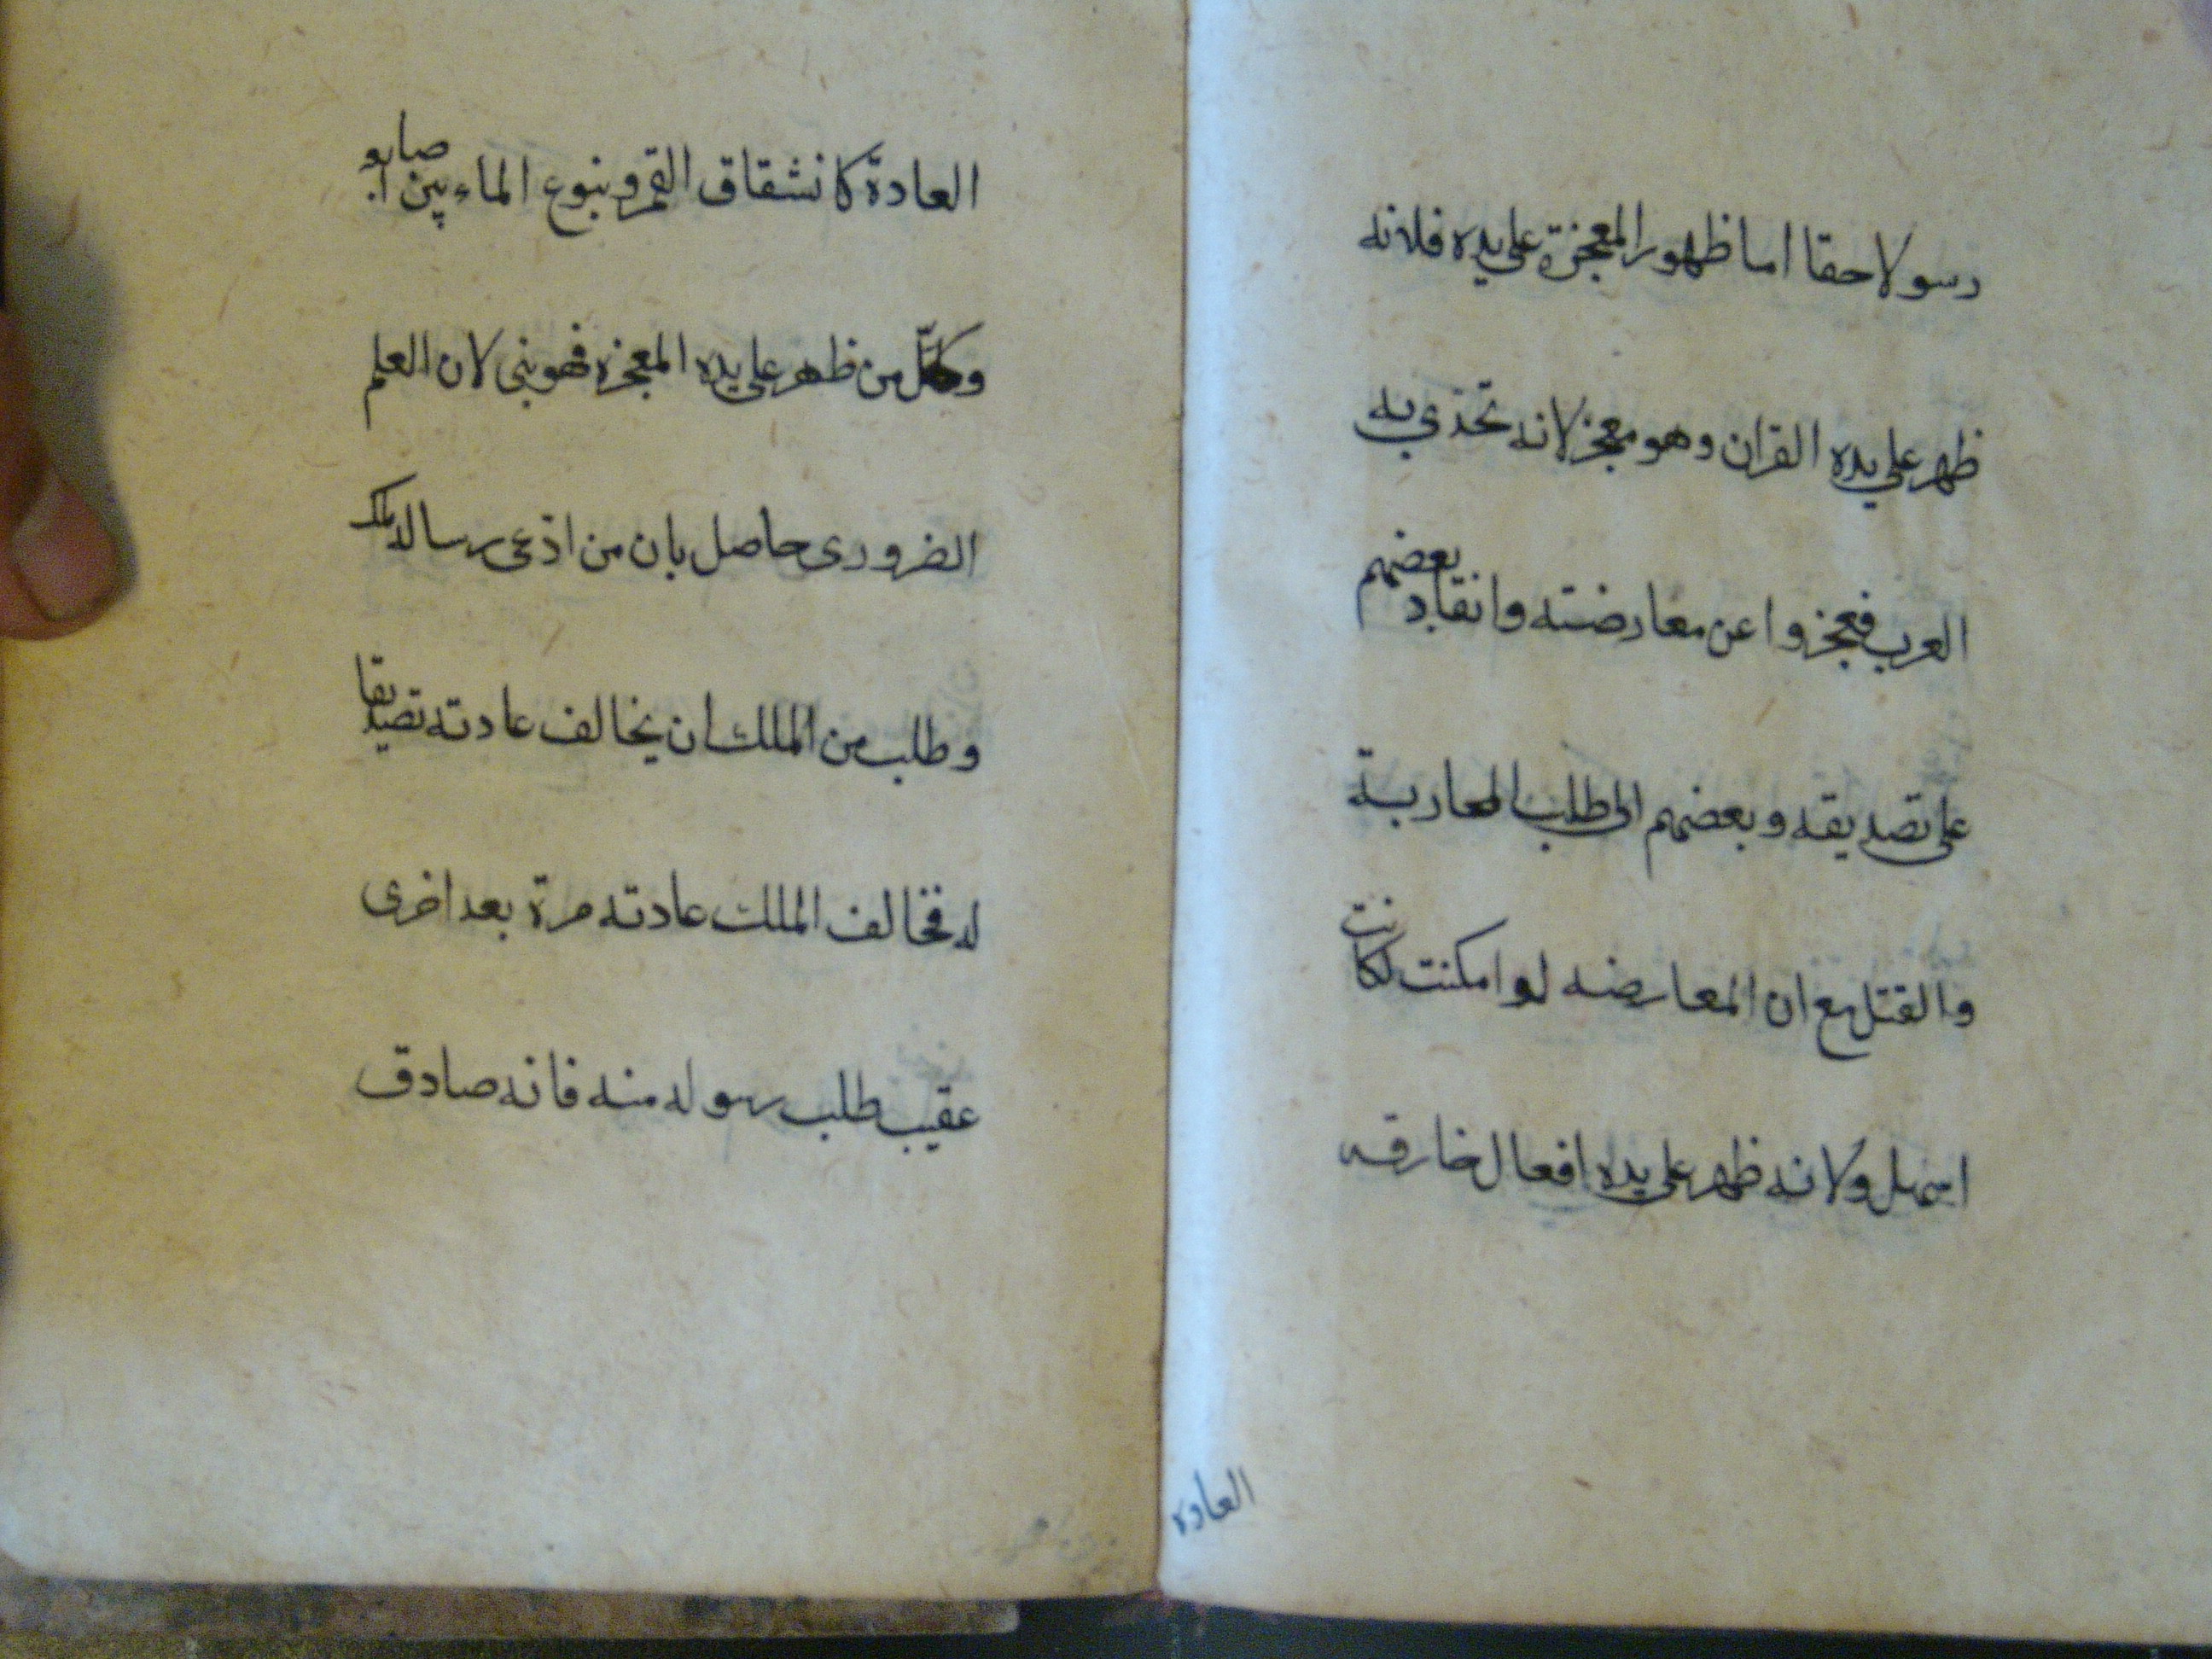 رسولا حقا اما ظهور المعجزة على يده فلانه
ظهر على يده القران وهو معجز لانه تحدي به
العرب فعجزوا عن معارضته وانقاد بعضهم
على تصديقه وبعضهم الى طلب المحاربة
والقتل مع ان المعارضه لو امكنت لكانت
اسهل ولانه ظهر على يده افعال خارقه
العاده
العادة كانشقاق القمر ونبوع الماء بين اصابعه
وكلّ من ظهر على يده المعجزه فهو نبى لان العلم
الضرورى حاصل بان من ادّعى رسالة ملك
وطلب من الملك ان يخالف عادته تصديقا
له فخالف الملك عادته مرة بعد اخرى
عقيب طلب رسوله منه فانه صادق